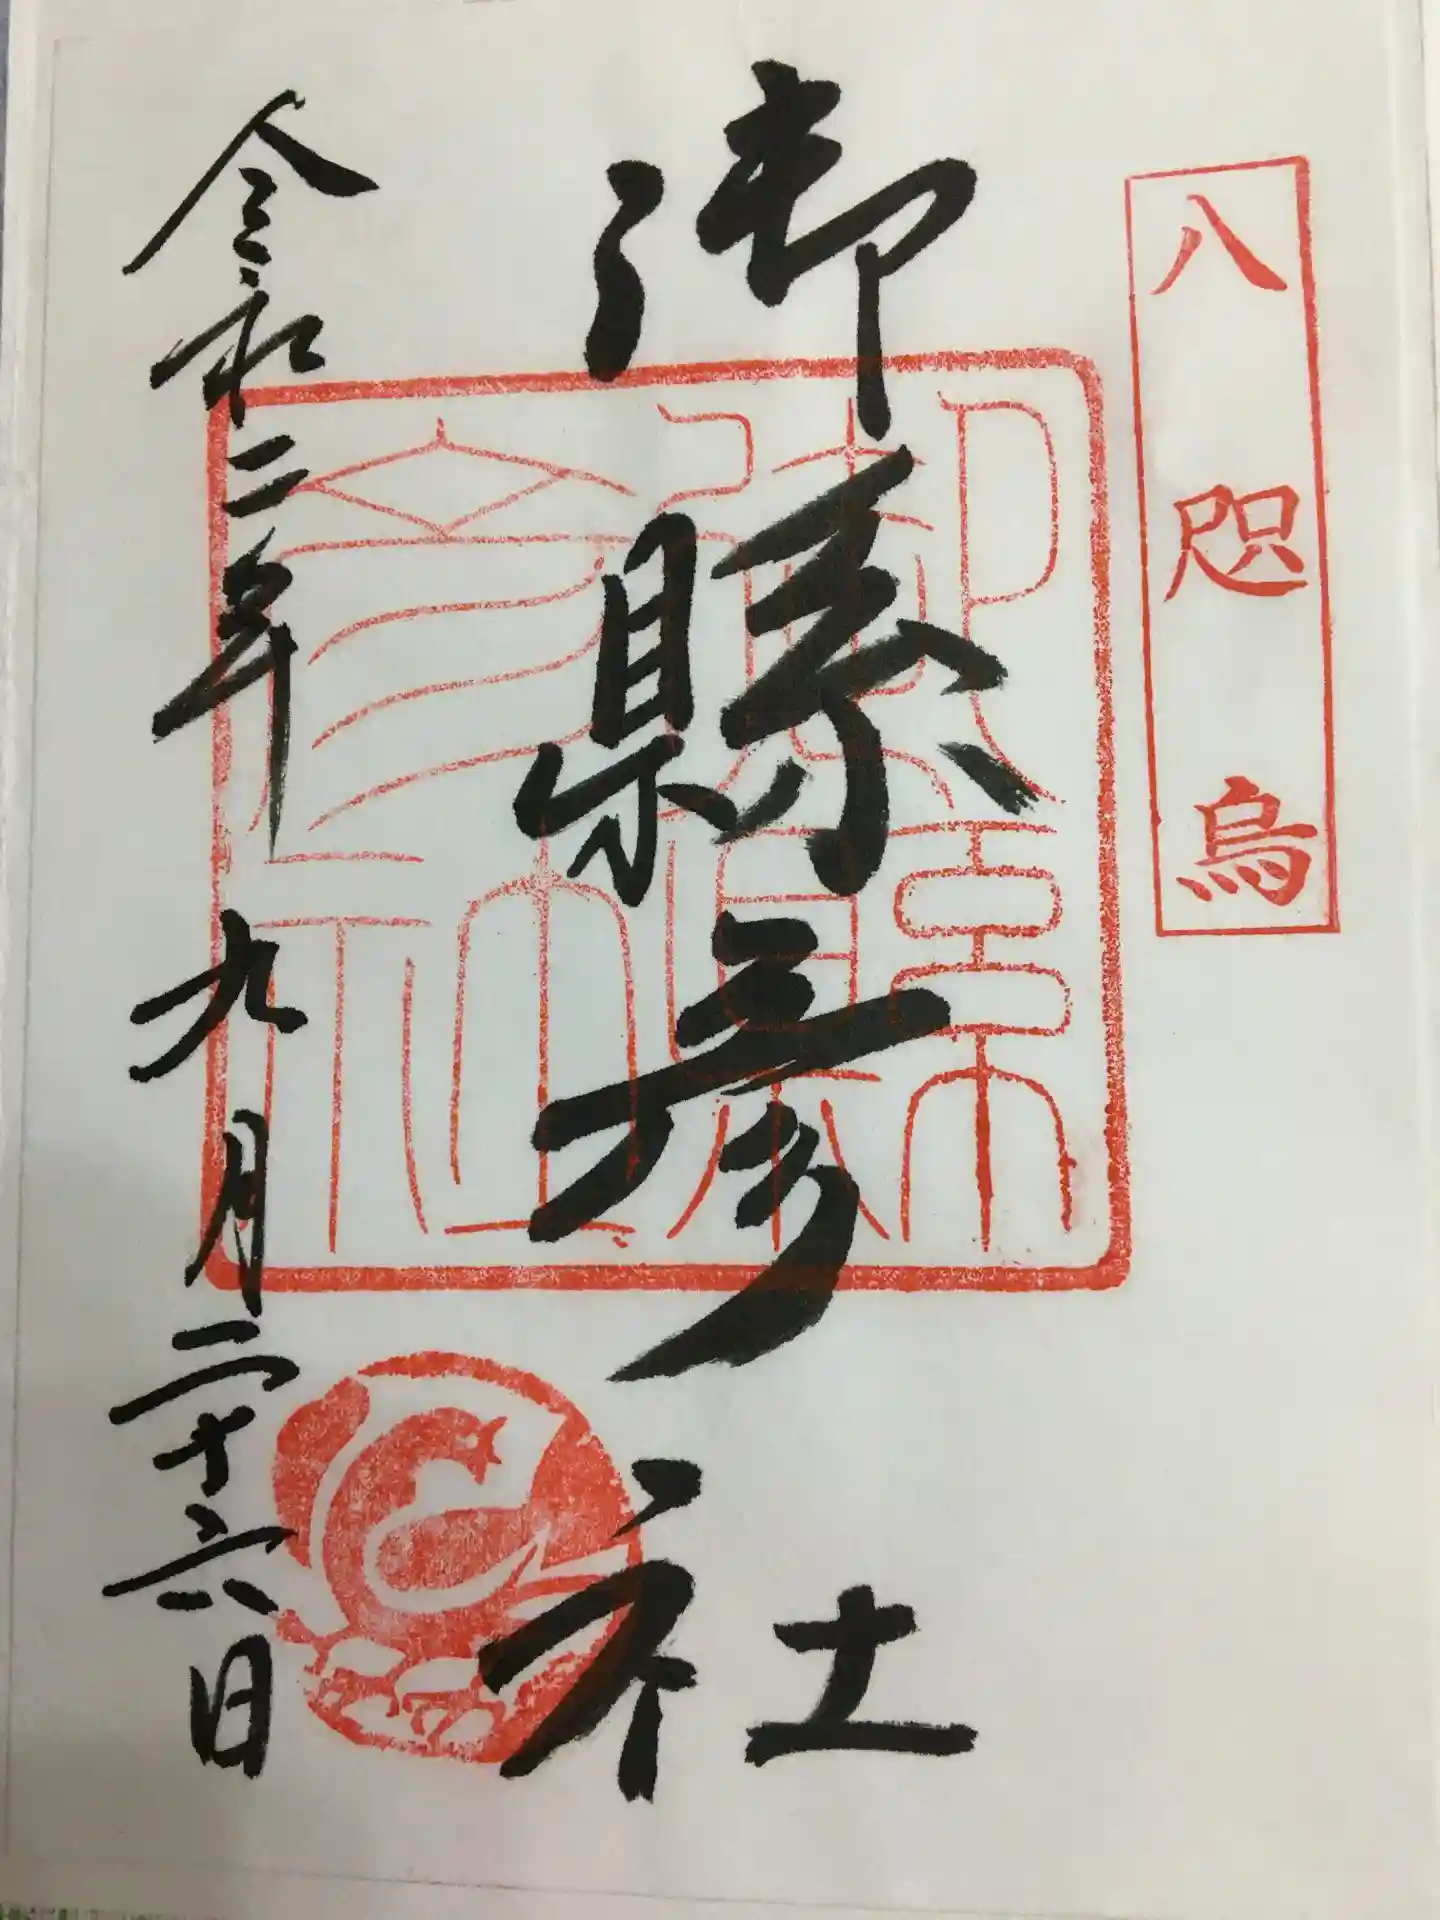 八咫烏
御縣彦社
御縣彦社
令和二年九月二十六日